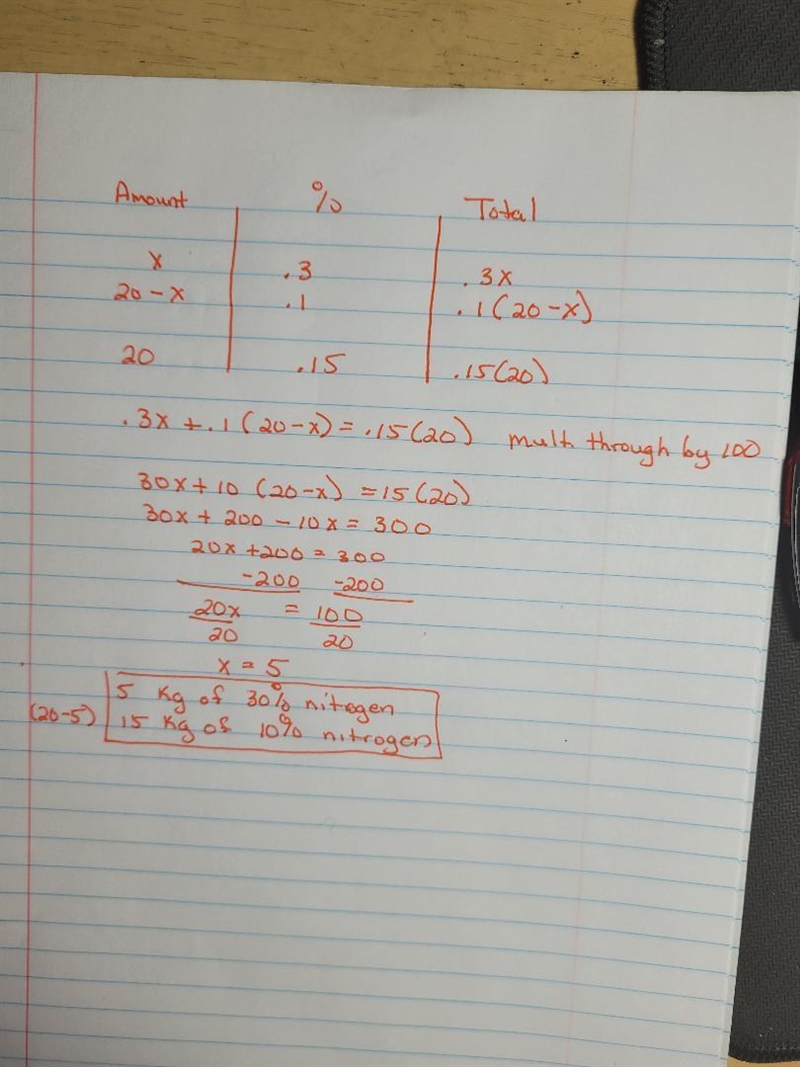 Amount % Total
x .3 .3x
20-x .1 .1(20-x)
20 .15 .15(20)
.3x + .1(20-x) = .15(20) mult through by 100
30x + 10 (20-x) = 15(20)
30x + 200 - 10x = 300
20x + 200 = 300
-200 -200
20x = 100
20 20
x = 5
5 Kg of 30% nitrogen
(20-5) 15 Kg of 10% nitrogen